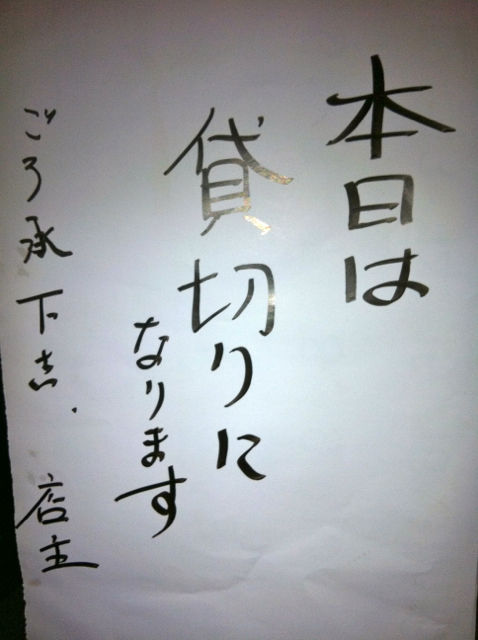 本日は
貸切りに
なります
ごろ承下さい.
店主